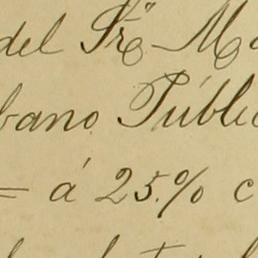 del Sr̃ Ma
bano Públic
= á 25% c